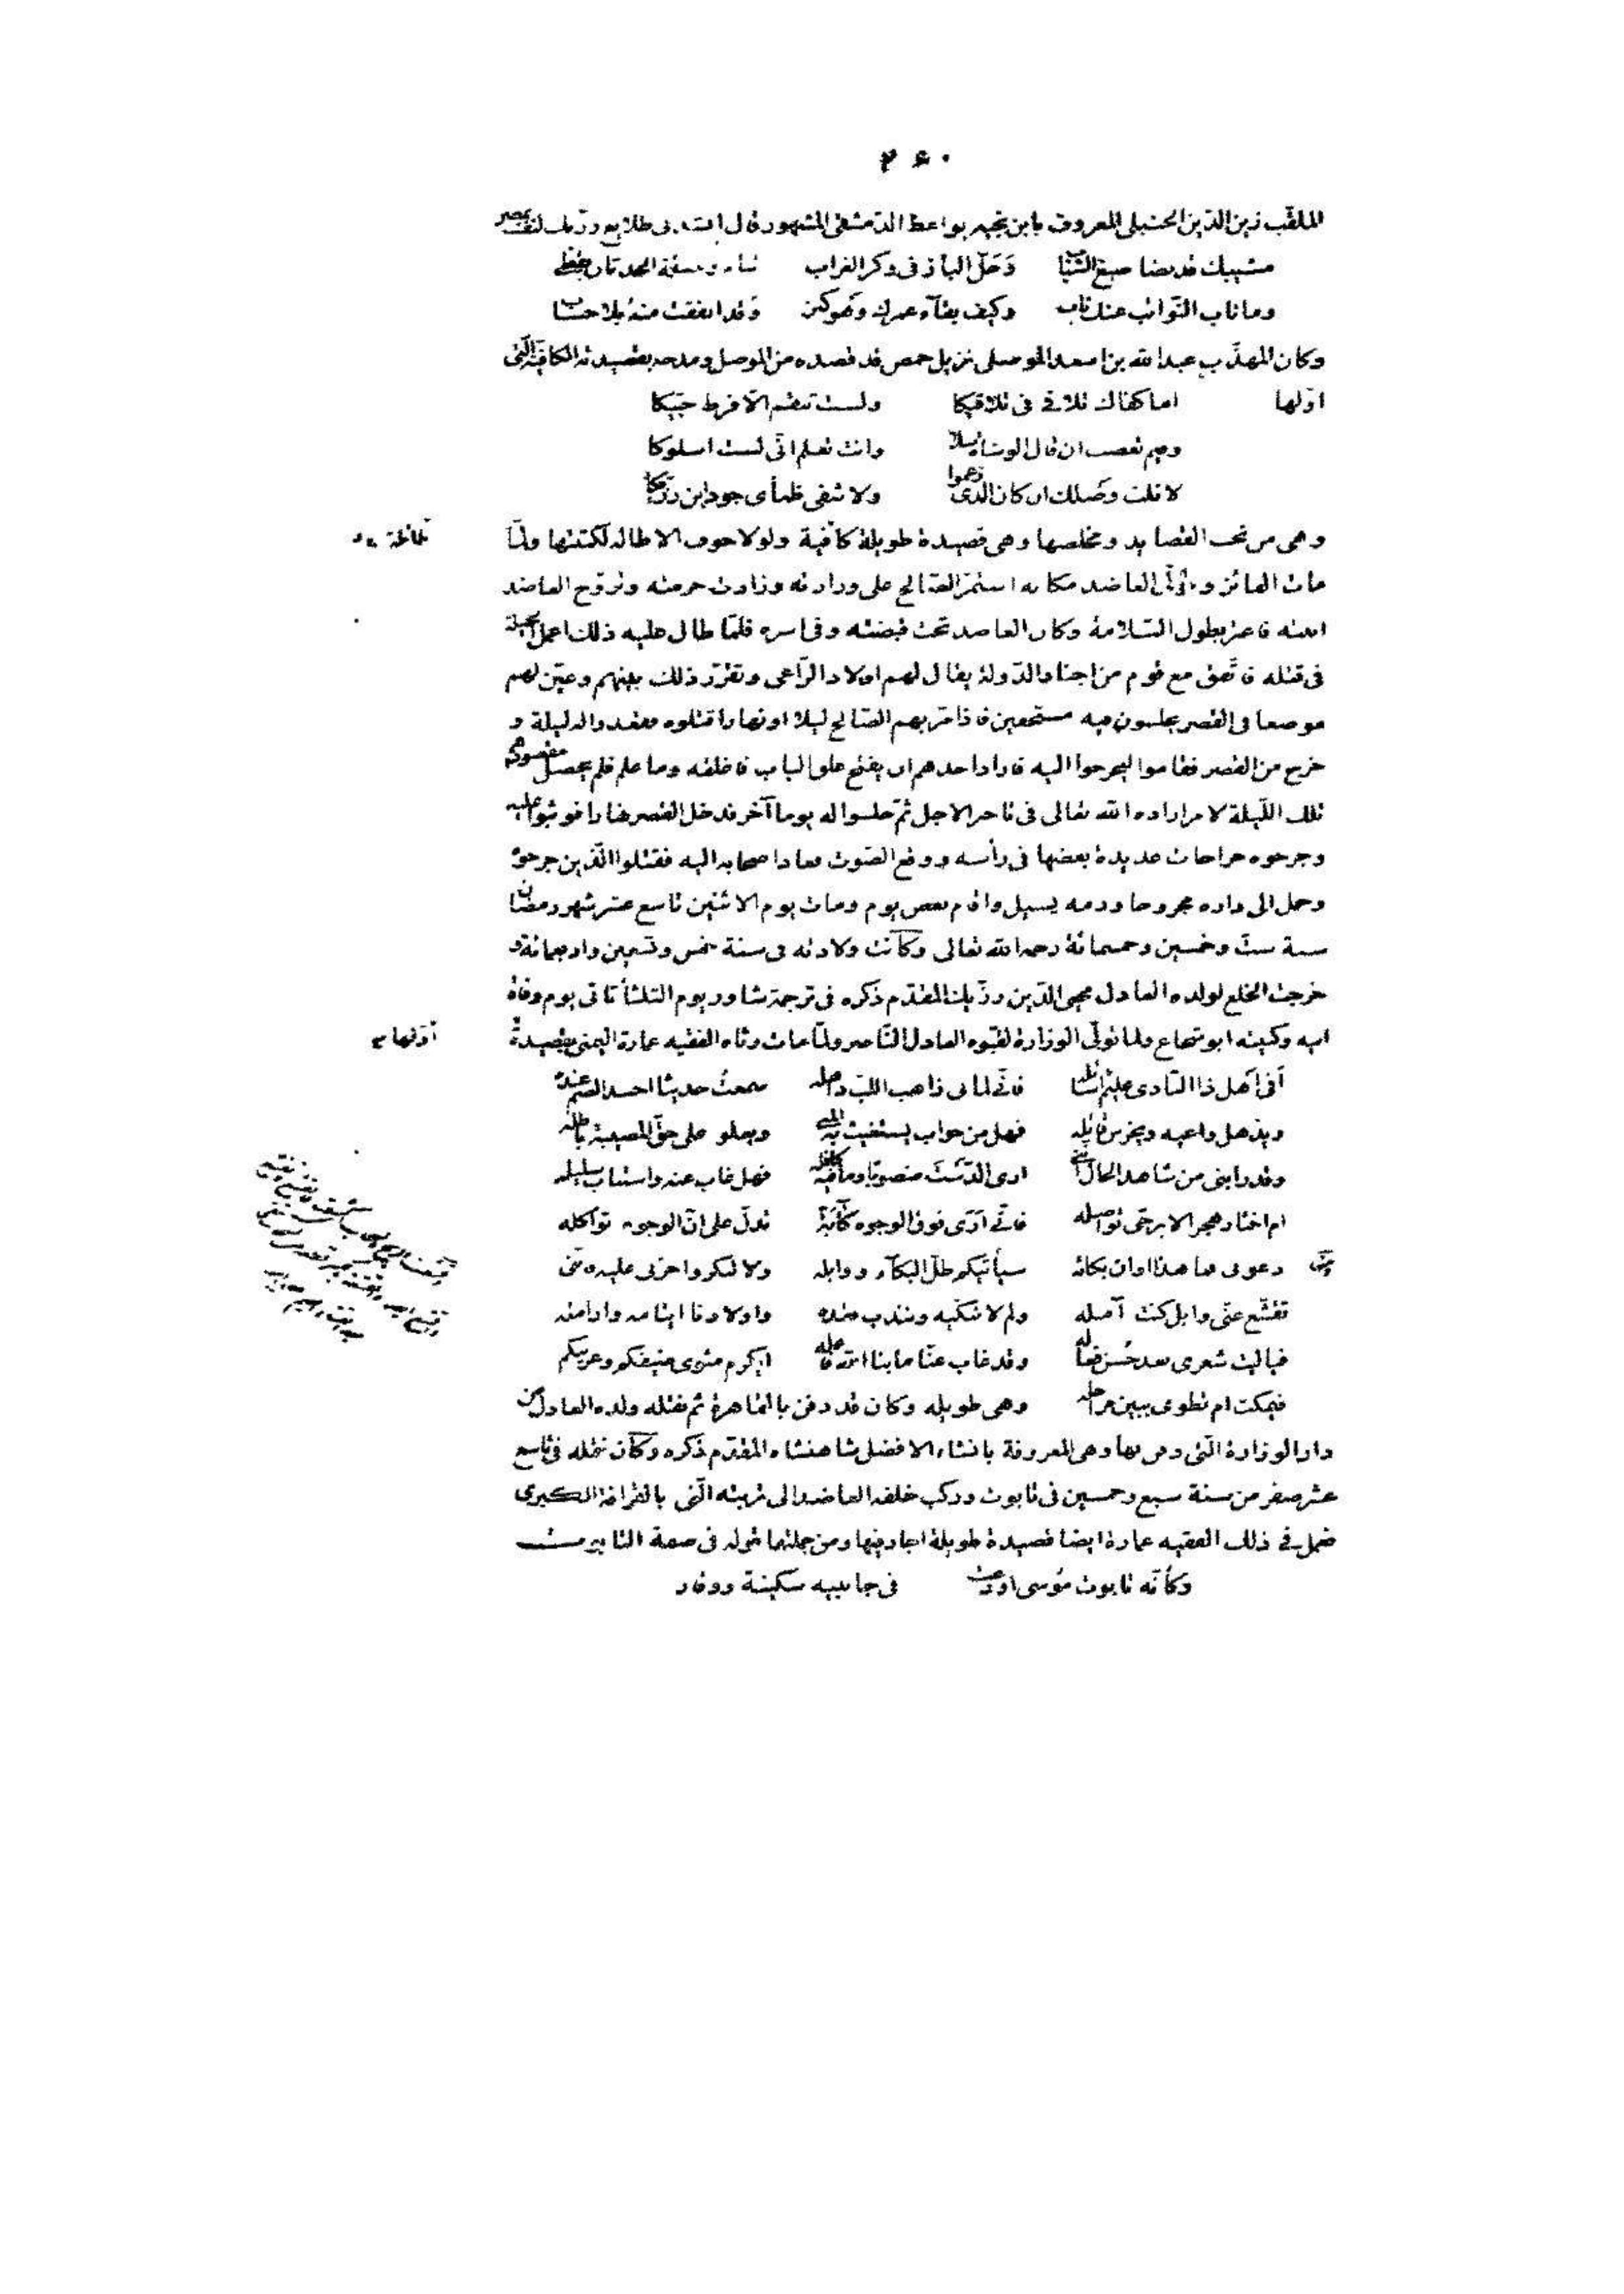 ٢٤٠
الملقّب زين الدّين الحنبلى المعروف بابن نجيه بواعظ الدّمشقى المشهور قال انشدنى طلايع رزّيك لنفسه بمصر
مشيبك قد نضا صبغ الشّباب وَحَلّ الباز فى وكر الغراب تنام ومقلة الحدثان يقظى
وما ناب النّوائب عنك ناب وكيف بقآء عمرك وَهو كنز وَقد انفقت منه بلا حساب
وكان المهذّب عبد الله بن اسعد الموصلى نزيل حمص قد قصده من الموصل ومدحه بقصيدته الكافيّة الّتى
اوّلها اما كفاك تلافى فى تلافيكا ولست تنقم الّا فرط حبّيكا
وفيم تغضب ان قال الوشاة سلا وانت تعلم انّى لست اسلوكا
لا نلت وصلك ان كان الّذى زعموا ولا شفى ظمأى جود ابن رزّيكا
وهى من نخب القصايد ومخلصها وهى قصيدة طويلة كافية ولولا خوف الاطالة لكتبتها ولمّا
مات الفائز وتولّى العاضد مكانه استمرّ الصّالح على وزارته وزادت حرمته وتزوّج العاضد
ابنته فاغتر بطول السّلامة وكان العاضد تحت قبضته وفى اسره فلمّا طال عليه ذلك اعمل الحيلة
فى قتله فاتّفق مع قوم من اجناد الدّولة يقال لهم اولاد الرّاعى وتقرّر ذلك بينهم وعيّن لهم
موضعا فى القصر يجلسون فيه مستخفين فاذا مرّ بهم الصّالح ليلا او نهارا قتلوه فقعدوا له ليلة و
خرج من القصر فقاموا ليخرجوا اليه فاراد احدهم ان يفتح غلق الباب فاغلقه وما علم فلم يحصل مقصودهم
تلك اللّيلة لامر اراده الله تعالى فى تاخير الاجل ثمّ جلسوا له يوما آخر فدخل القصر نهارا فوثبوا عليه
وجرحوه جراحات عديدة بعضها فى رأسه ووقع الصّوت فعاد اصحابه اليه فقتلوا الّذين جرحوه
وحمل الى داره مجروحا ودمه يسيل واقام بعض يوم ومات يوم الاثنين تاسع عشر شهر رمضان
سنة ستّ وخمسين وخمسمائة رحمه الله تعالى وكانت ولادته فى سنة خمس وتسعين واربعمائة و
خرجت الخلع لولده العادل محيى الدّين رزّيك المقدّم ذكره فى ترجمة شاور يوم الثلثآ ثانى يوم وفاة
ابيه وكنيته ابو شجاع ولما تولّى الوزارة لقبوه العادل النّاصر ولمّا مات رثاه الفقيه عمارة اليمنى بقصيدة اوّلها
أفى اَهل ذا النّادى عليم اسائله فانّى لما بى ذاهب اللّبّ ذاهله سمعتُ حديثا احسد الصّمّ عنده
ويذهل واعيه ويخرس قائله فهل من جواب يستغيث به المنى ويعلو على حقّ المصيبة باطله
وقد رابنى من شاهد الحال أنّنى ارى الدّست منصوبًا وما فيه كافله فهل غاب عنه واستناب سليله
ام اختار هجرا لا يرجّى تواصله فانّى اَرَى فوق الوجوه كَآبَة تدلّ على انّ الوجوه ثواكله
دعونى فما هذا اوان بكائه سيأتيكم طلّ البكآء ووابله ولا تنكروا حزنى عليه فانّنى
تقشّع عنّى وابل كنت آمله ولم لا نبكّيه ونندب فقده واولادنا ايتامه وارامله
فياليت شعرى بعد حُسن فعاله وقد غاب عنّا ما بنا الله فاعله ايكرم مثوى ضيفكم وغريبكم
فيمكث ام تطوى ببين مراحله وهى طويله وكان قد دفن بالقاهرة ثم نقله ولده العادل من
دار الوزارة الّتى دفن بها وهى المعروفة بانشاء الافضل شاهنشاه المقدّم ذكره وكان نقله فى تاسع
عشر صفر من سنة سبع وخمسين فى تابوت وركب خلفه العاضد الى تربته الّتى بالقرافة الكبرى
فعمل فى ذلك الفقيه عمارة ايضا قصيدة طويلة اجاد فيها ومن جملتها قوله فى صفة التابوت
وكأنّه تابوت مُوسى اودعت فى جانبيه سكينة ووقار